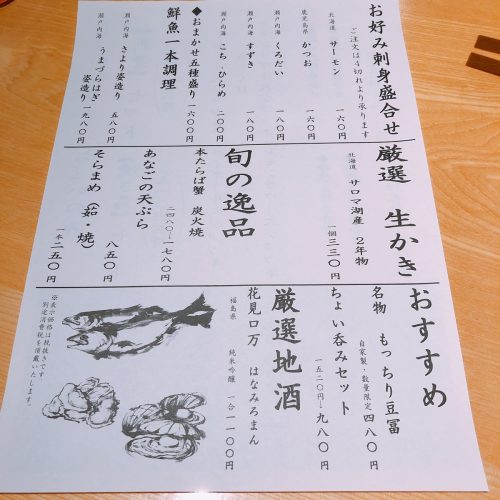 お好み刺身盛合せ
ご注文は4切れより承ります
北海道 サーモン 一六〇円
鹿児島県 かつお 一六〇円
瀬戸内海 くろだい 一八〇円
瀬戸内海 すずき 一八〇円
瀬戸内海 こち・ひらめ 二〇〇円
◆おまかせ五種盛り 一六〇〇円
鮮魚一本調理
瀬戸内海 さより姿造り 五八〇円
瀬戸内海 うまづらはぎ 姿造り 一九八〇円
厳選 生かき
北海道 サロマ湖産 2年物 一個 三三〇円
旬の逸品
本たらば蟹 炭火焼 二四八〇→一七八〇円
あなごの天ぷら 八五〇円
そらまめ(茹・焼) 一本二五〇円
おすすめ
名物 もっちり豆冨
自家製・数量限定 四八〇円
ちょい呑みセット
一五二〇円→九八〇円
厳選地酒
花見ロ万 はなみろまん
福島県 純米吟醸 一合 一一〇〇円
※表示価格は税抜きです
別途消費税を頂戴いたします。